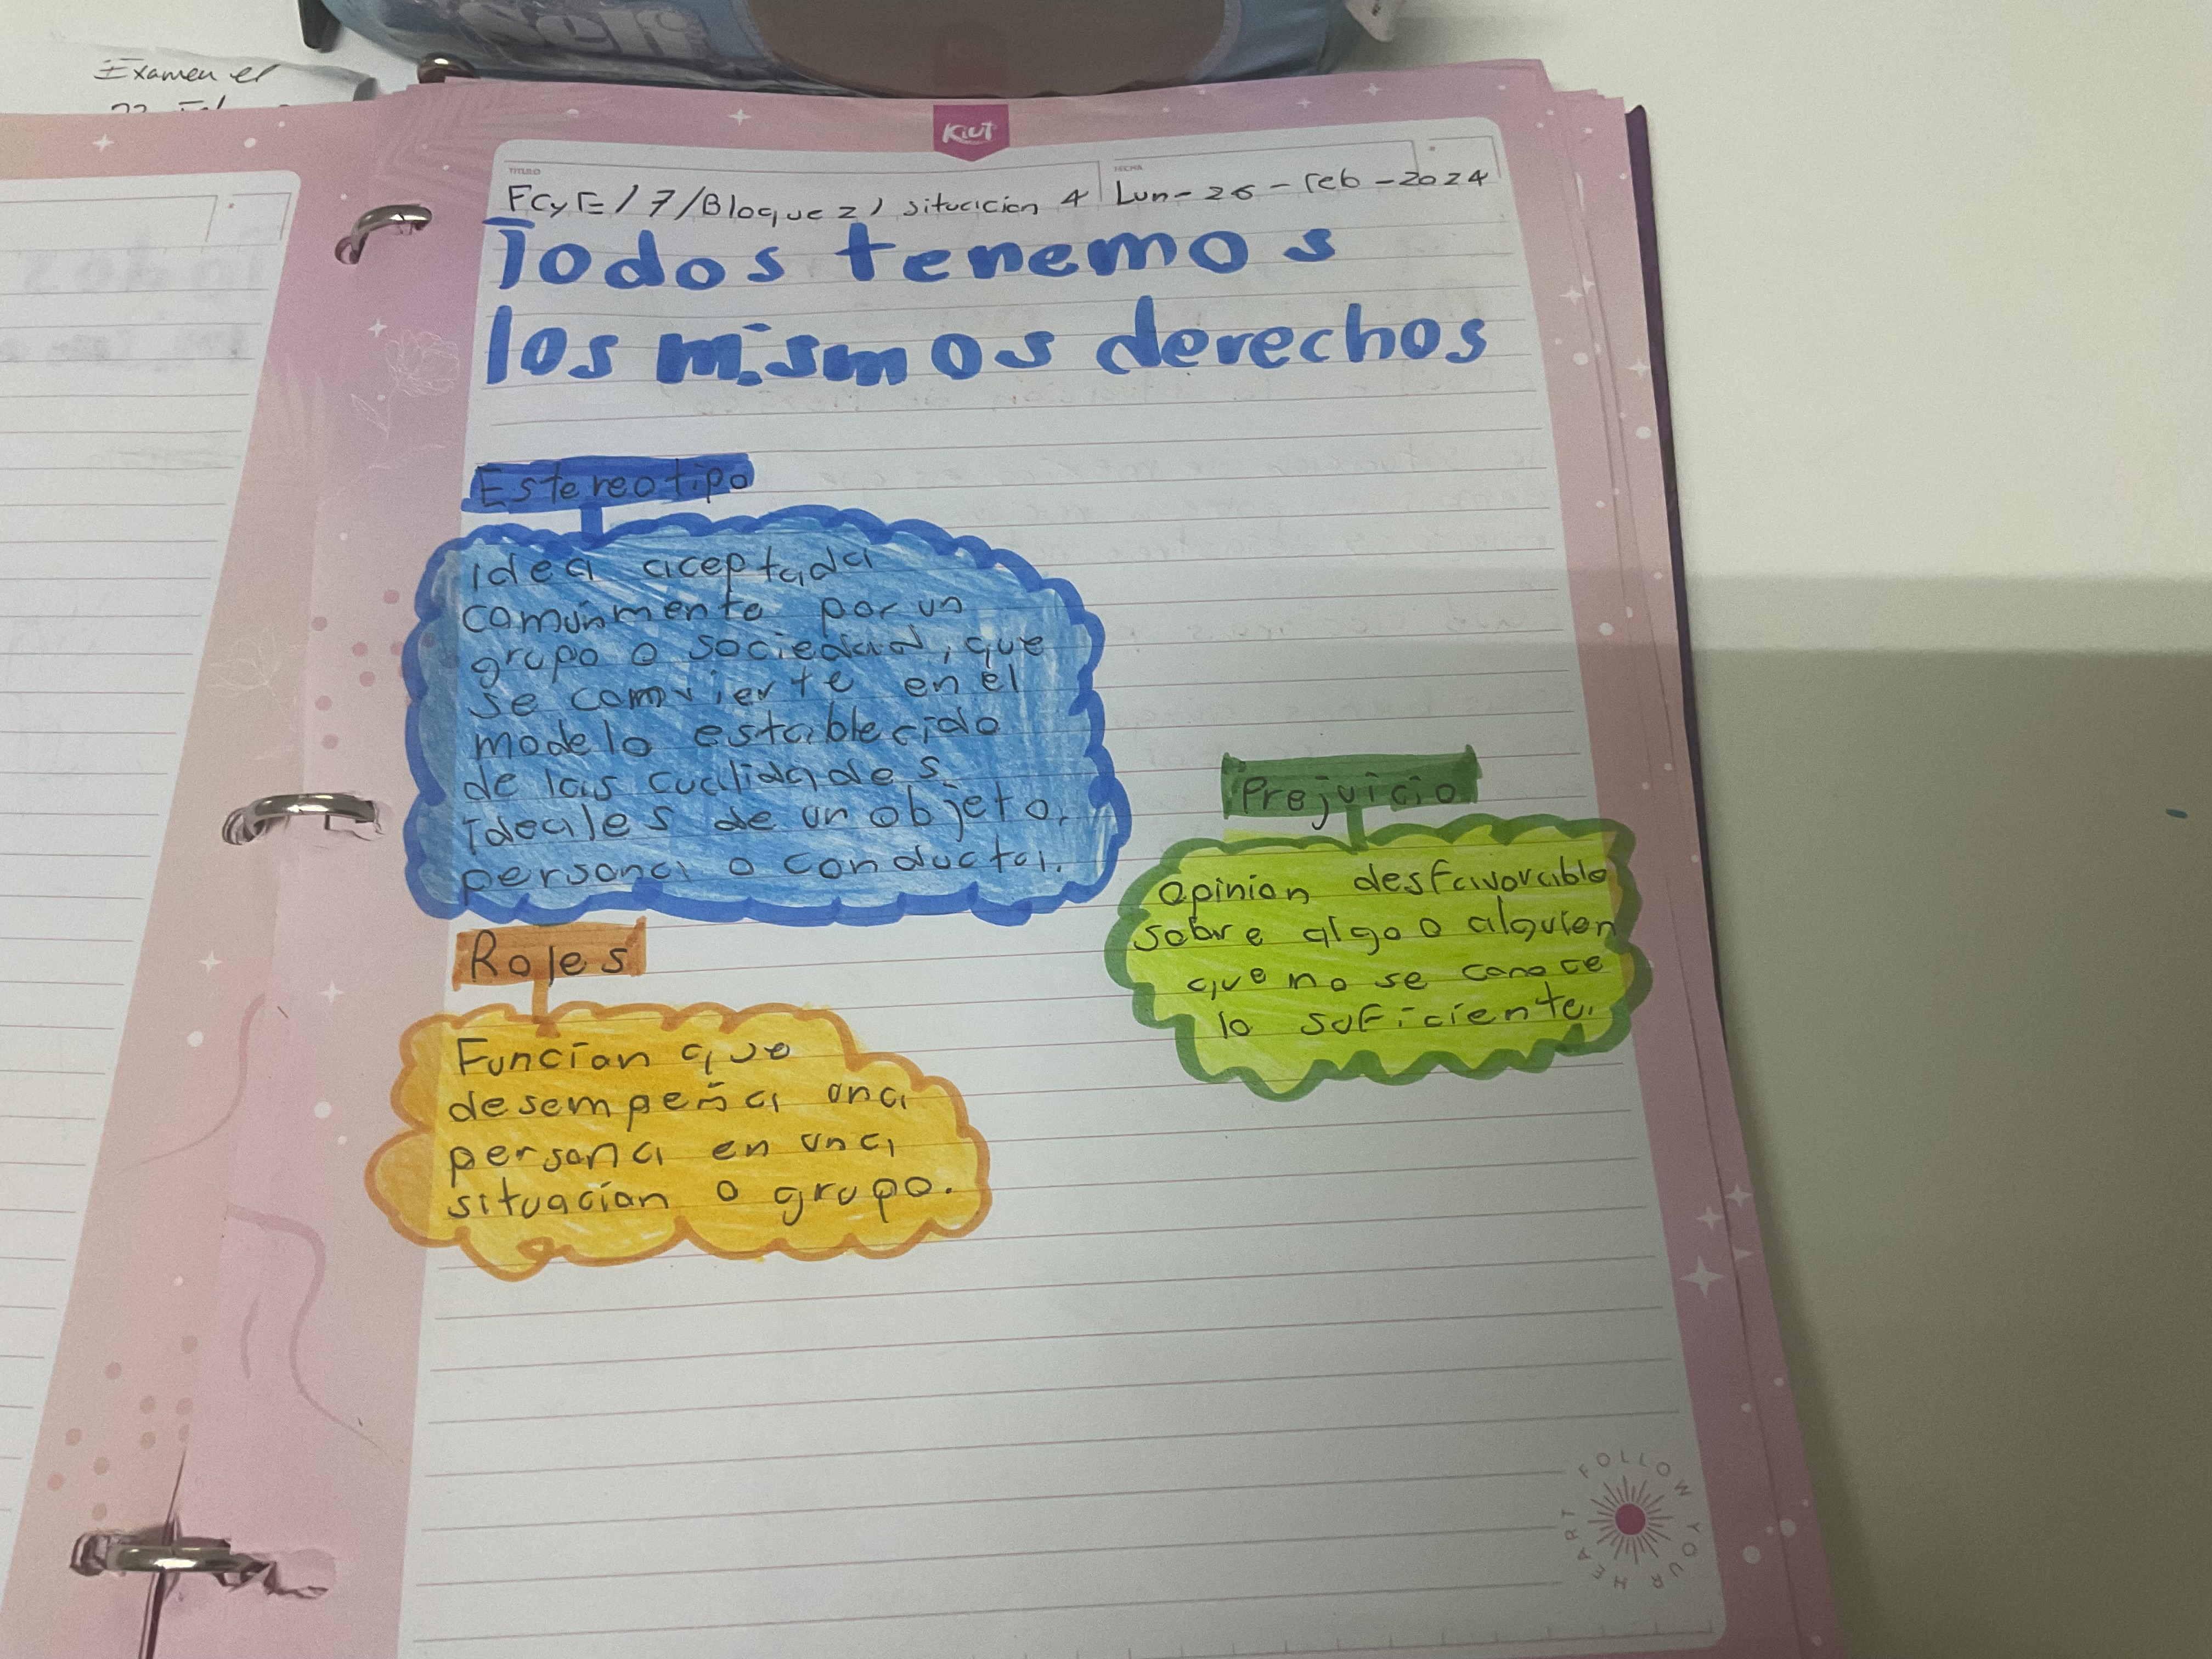 Self
Examen el
Kiut
TITULO
FECHA
FCyE/7/Bloque 2/ situacion 4
Lun-26-Feb-2024
Todos tenemos
los mismos derechos
Estereotipo
idea aceptada
comúnmente por un
grupo o sociedad, que
se comvierte en el
modelo establecido
de las cualidades
ideales de un objeto,
persona o conducta.
Prejuicio
Opinion desfavorable
sobre algo o alguien
que no se conoce
lo suficiente.
Roles
Funcion que
desempeña una
persona en una
situacion o grupo.
FOLLOW YOUR HEART